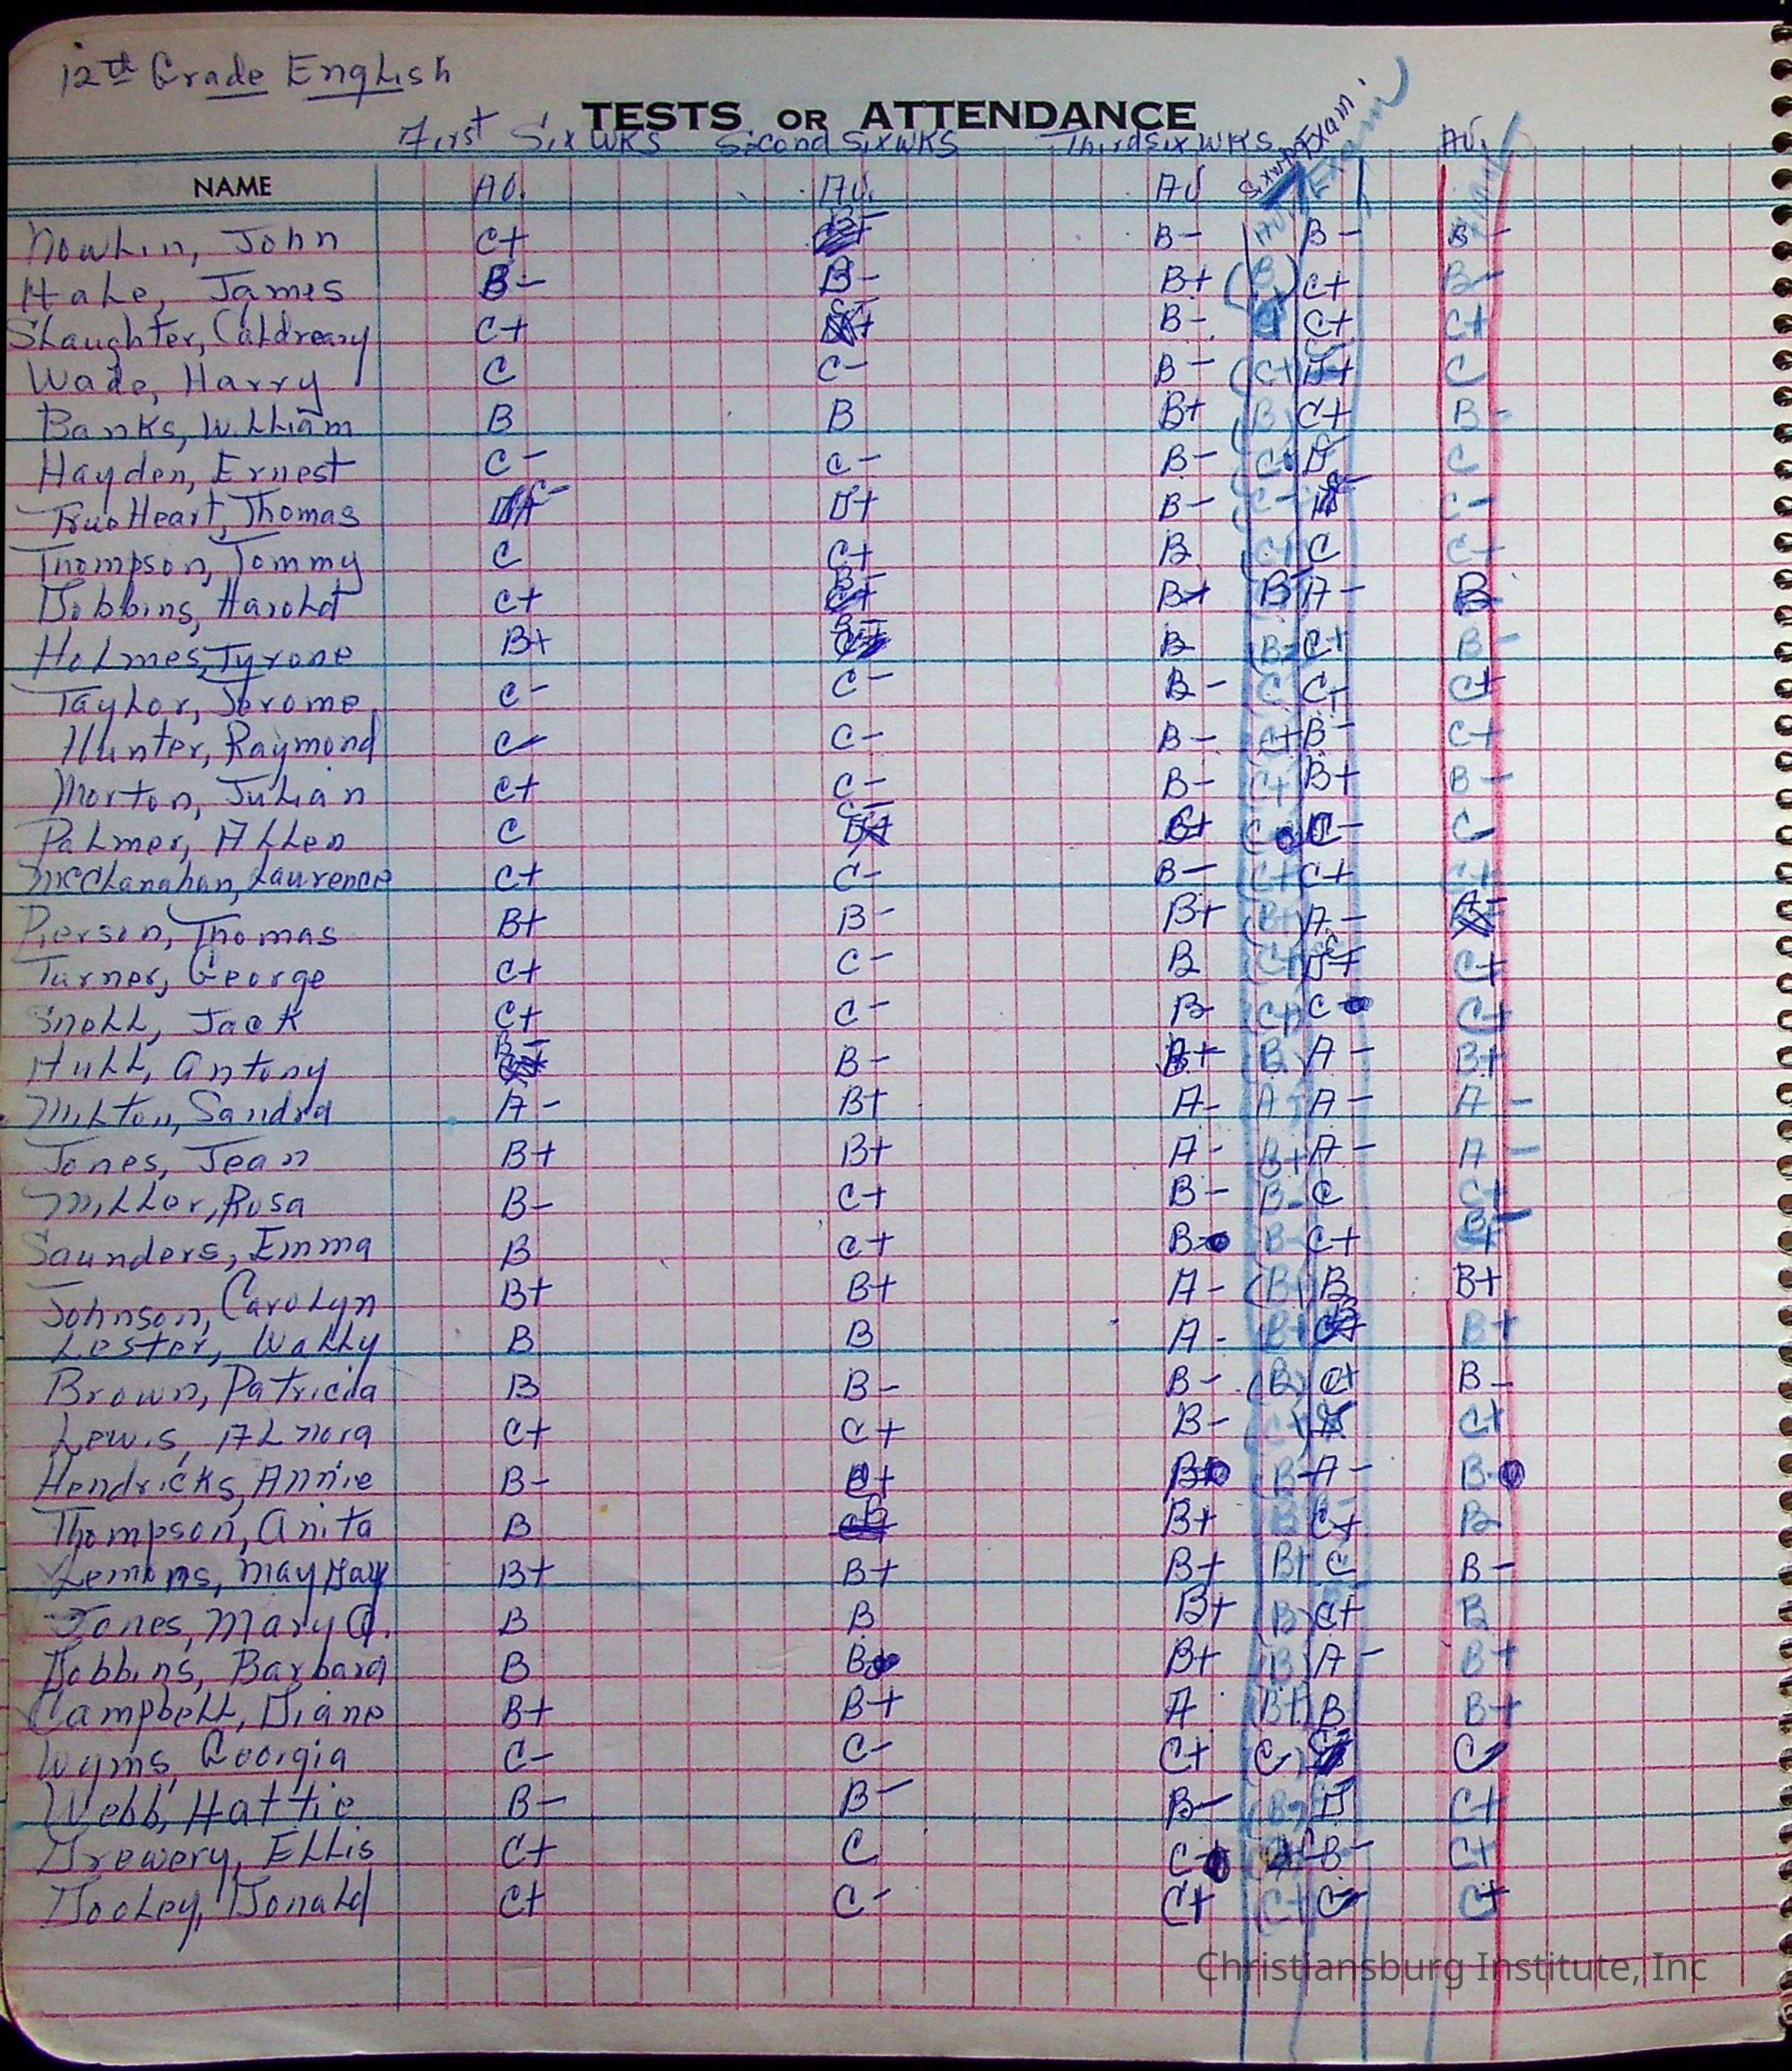 12th Grade English
TESTS OR ATTENDANCE
First Six WKS Second Six WKS Third Six WKS Exam. Av.
NAME Av. Av. Av Exam
Nowlin, John C+ B- B- B- B-
Hale, James B- B- B+ (B) C+ B-
Slaughter, Caldreary C+ C- B- C+ C+
Wade, Harry C C- B- (C+) C
Banks, William B B B+ B C+ B-
Hayden, Ernest C- C- B- D C
TrueHeart, Thomas C- D+ B- C- C-
Thompson, Tommy C C+ B C+ C C+
Dobbins, Harold C+ B- B+ B A- B
Holmes, Tyrone B+ B- B B- C+ B-
Taylor, Jerome C- C- B- C C+ C+
Hunter, Raymond C- C- B- C+ B- C+
Morton, Julian C+ C- B- C+ B+ B-
Palmer, Allen C C- B+ C C- C
McClanahan, Laurence C+ C- B- C+ C+ C+
Pierson, Thomas B+ B- B+ (B+) A- A-
Turner, George C+ C- B C+ C+
Snell, Jack C+ C- B- C+ C C+
Hull, Antony B- B- B+ B A- B+
Milton, Sandra A- B+ A- A- A- A-
Jones, Jean B+ B+ A- B+ A- A-
Miller, Rosa B- C+ B- B- C C+
Saunders, Emma B C+ B B- C+ B-
Johnson, Carolyn B+ B+ A- (B+) B B+
Lester, Wally B B A- B+ B B+
Brown, Patricia B B- B- (B) C+ B-
Lewis, Alnora C+ C+ B- C+ C+
Hendricks, Annie B- B A- B
Thompson, Anita B B B+ B C+ B
Lemons, May Gay B+ B+ B+ B+ C B-
Jones, Mary A. B B B+ (B) C+ B
Dobbins, Barbara B B B+ (B) A- B+
Campbell, Diane B+ B+ A B+ B B+
Wyms, Georgia C- C- C+ (C-) C
Webb, Hattie B- B- B- (B-) D C+
Drewery, Ellis C+ C C B- C+
Dooley, Donald C+ C- C+ C+ C- C+
Christiansburg Institute, Inc